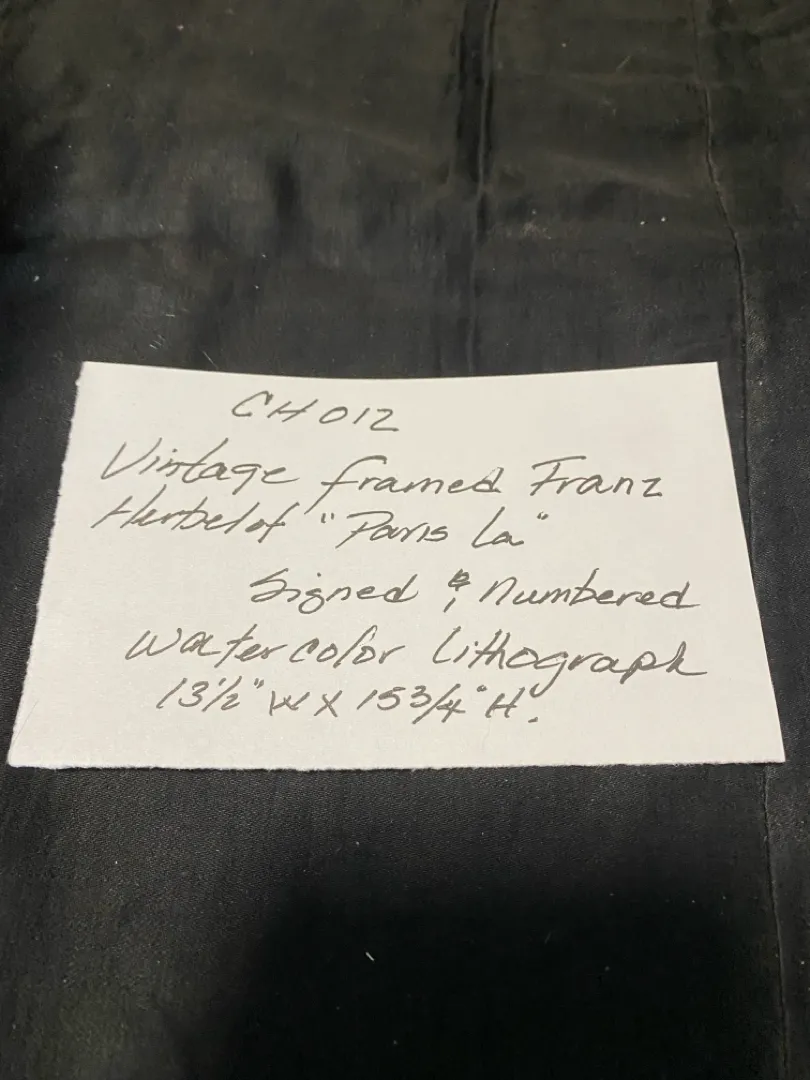 CH012
Vintage framed Franz
Herbelot "Paris La"
Signed & numbered
watercolor lithograph
13½" W X 15¾" H.